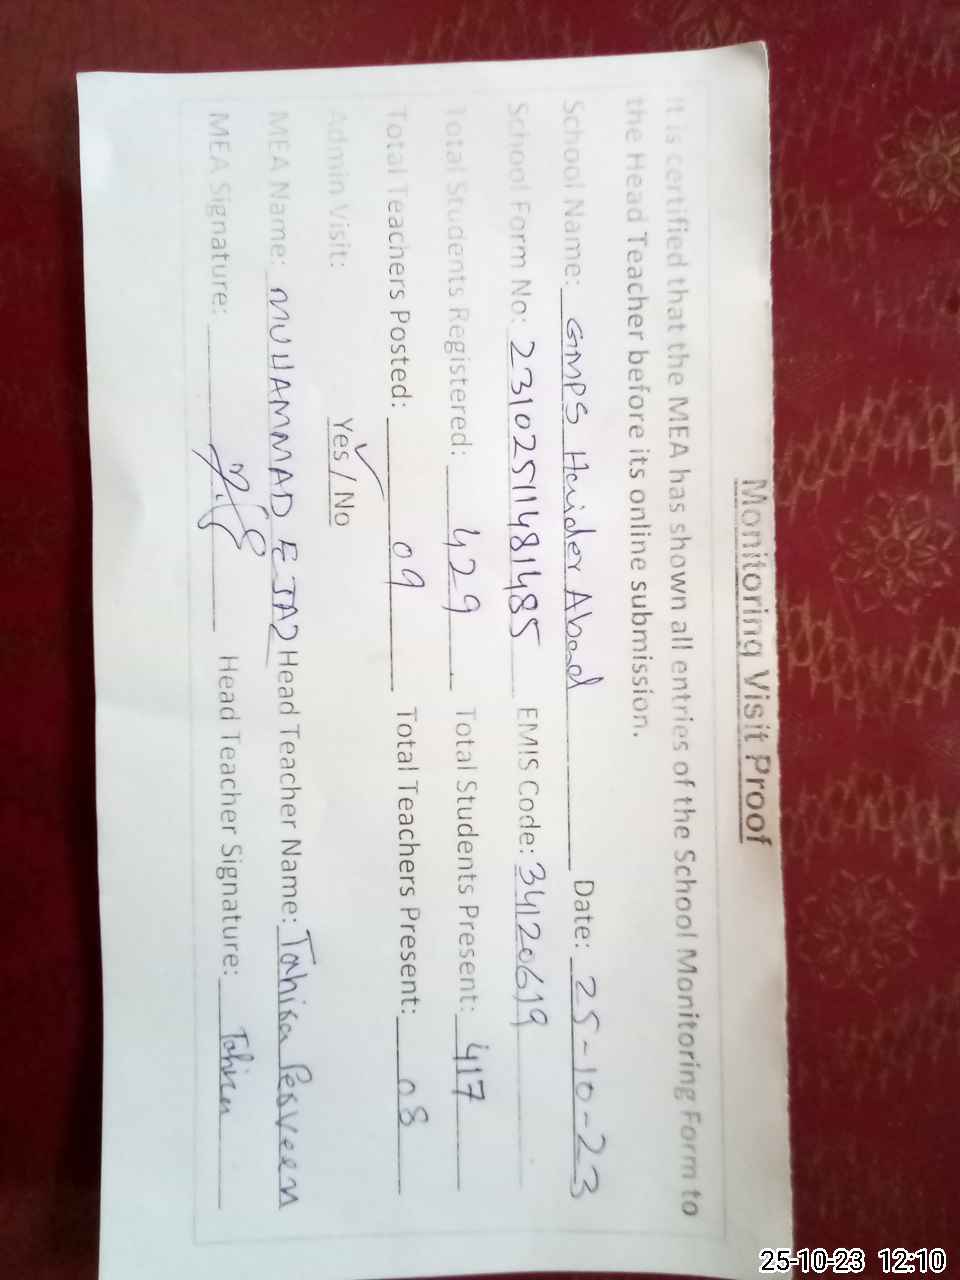 Monitoring Visit Proof
It is certified that the MEA has shown all entries of the School Monitoring Form to
the Head Teacher before its online submission.
School Name: GMPS Haider Abad Date: 25-10-23
School Form No: 23102511481485 EMIS Code: 34120619
Total Students Registered: 429 Total Students Present: 417
Total Teachers Posted: 09 Total Teachers Present: 08
Admin Visit: Yes / No
MEA Name: MUHAMMAD EJAZ Head Teacher Name: Tahira Perveen
MEA Signature: Head Teacher Signature: Tahira
25-10-23 12:10